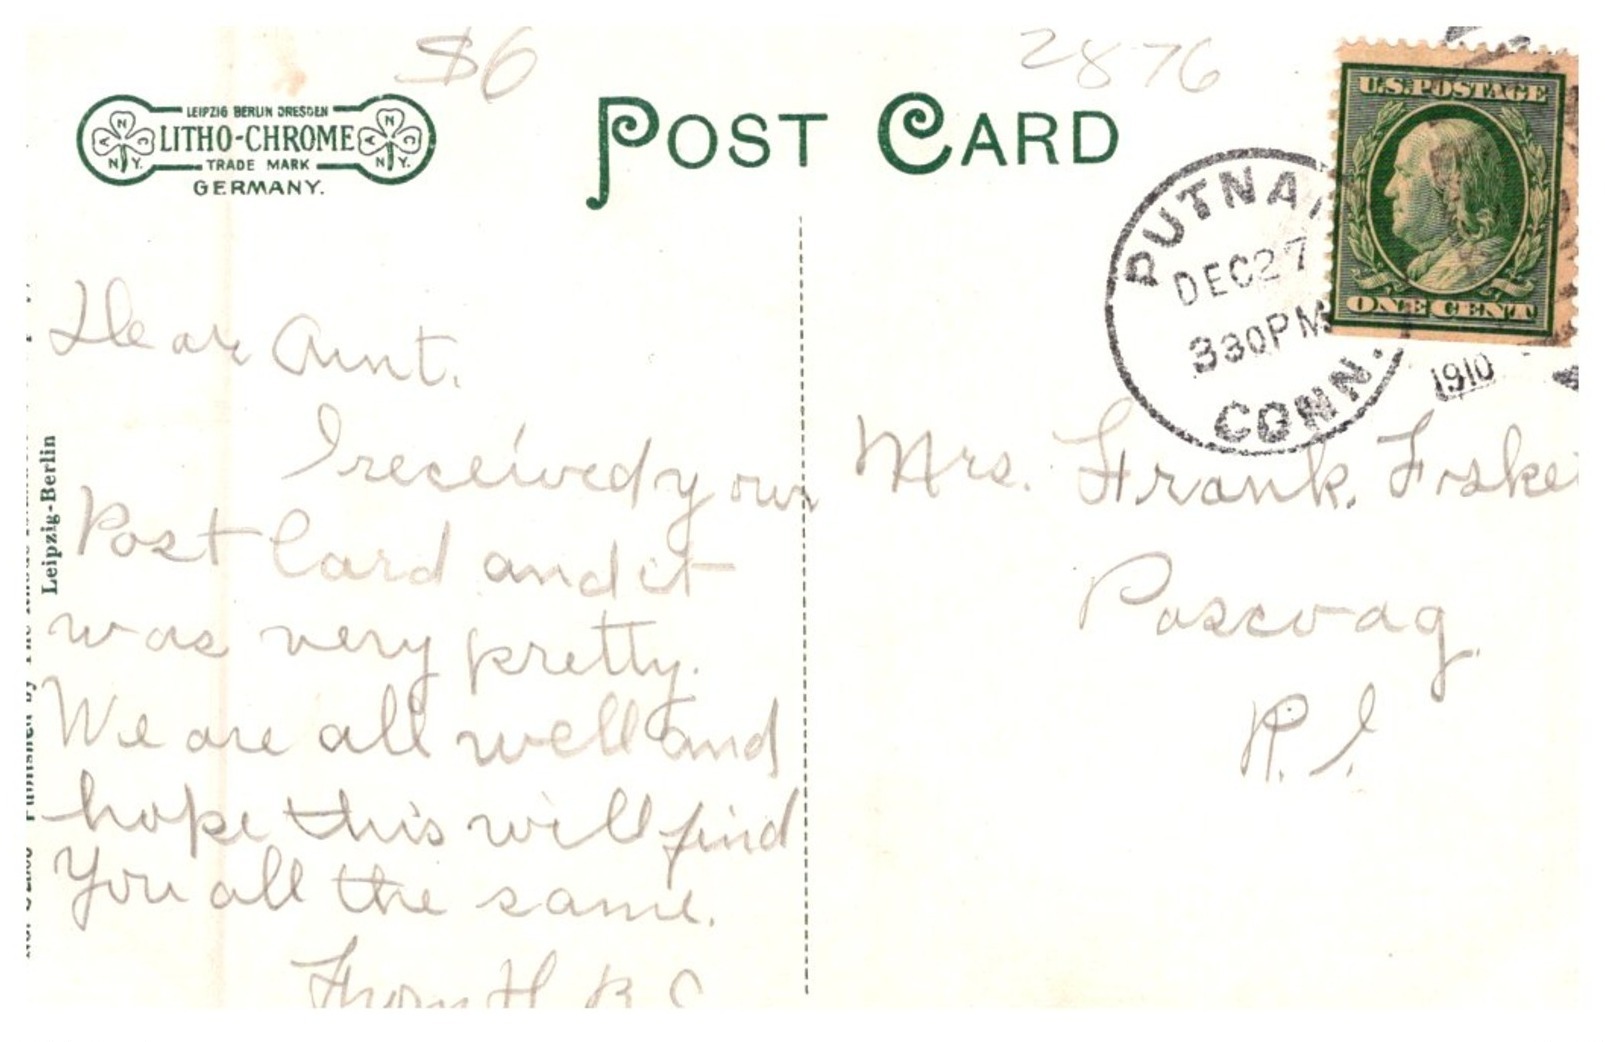 $6
2876
LEIPZIG BERLIN DRESDEN
LITHO-CHROME
TRADE MARK
GERMANY.
A N C
N.Y.
A N C
N.Y.
POST CARD
U.S. POSTAGE
ONE CENT
PUTNAM
DEC 27
330PM
CONN.
1910
Dear Aunt.
I received your
Post Card and it
was very pretty.
We are all well and
hope this will find
You all the same.
From H. B. C
Mrs. Frank.
Pascoag
R.I.
Published by The
Leipzig-Berlin